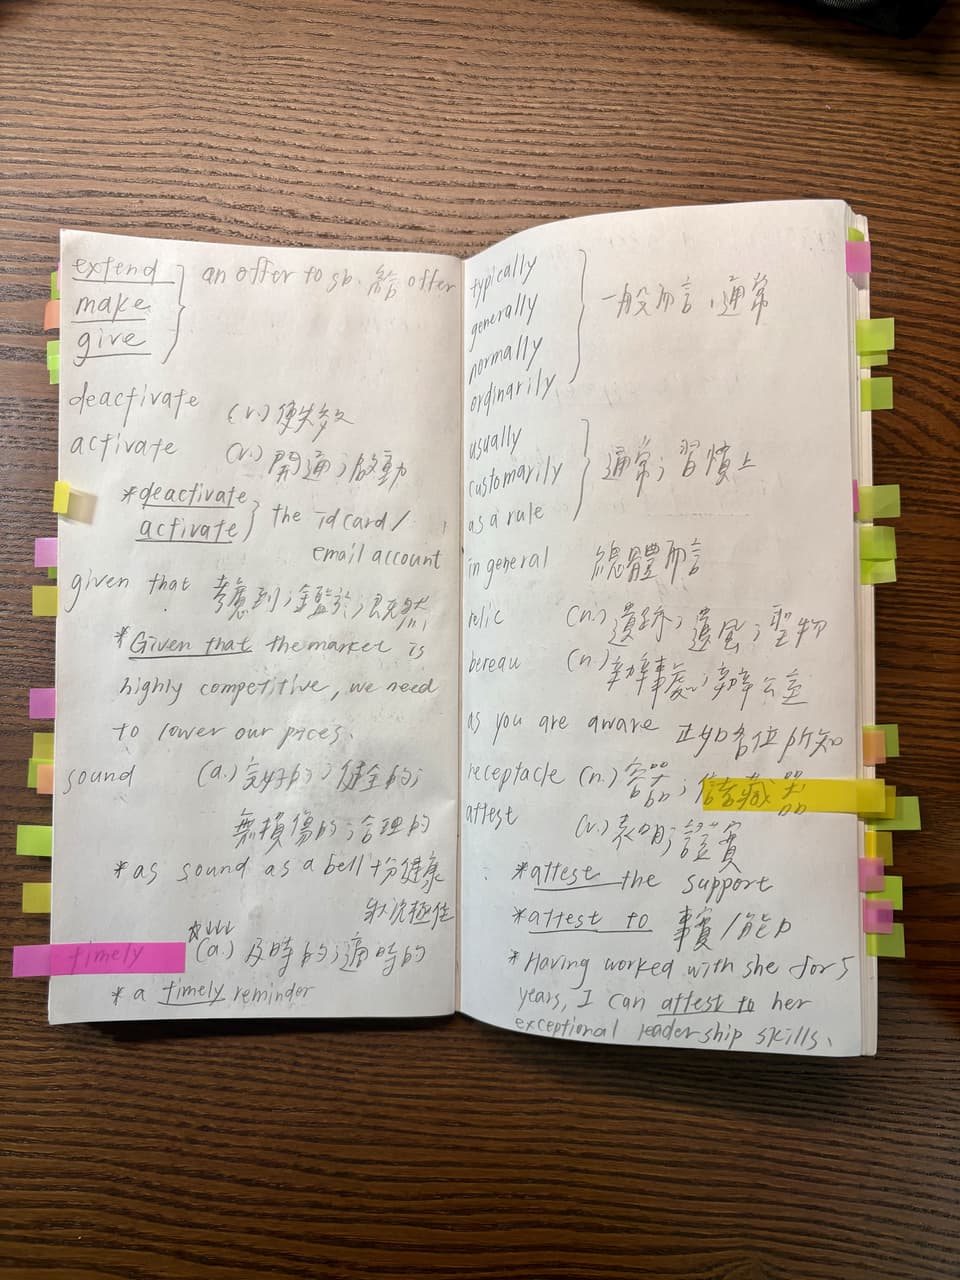 extend
make
give
an offer to sb. 給 offer
deactivate (v.) 使失效
activate (v.) 開通；啟動
*deactivate
activate
the id card/
email account
given that 考慮到；鑑於；既然
*Given that the market is
highly competitive, we need
to lower our prices.
sound (a.) 完好的；健全的；
無損傷的；合理的
*as sound as a bell 十分健康
狀況極佳
timely (a.) 及時的；適時的
*a timely reminder
typically
generally
normally
ordinarily
一般而言，通常
usually
customarily
as a rule
通常；習慣上
in general 總體而言
relic (n.) 遺跡；遺風；聖物
bereau (n.) 辦事處；辦公室
as you are aware 正如各位所知
receptacle (n.) 容器；儲藏器
attest (v.) 表明；證實
*attest the support
*attest to 事實/能力
*Having worked with she for 5
years, I can attest to her
exceptional leadership skills.